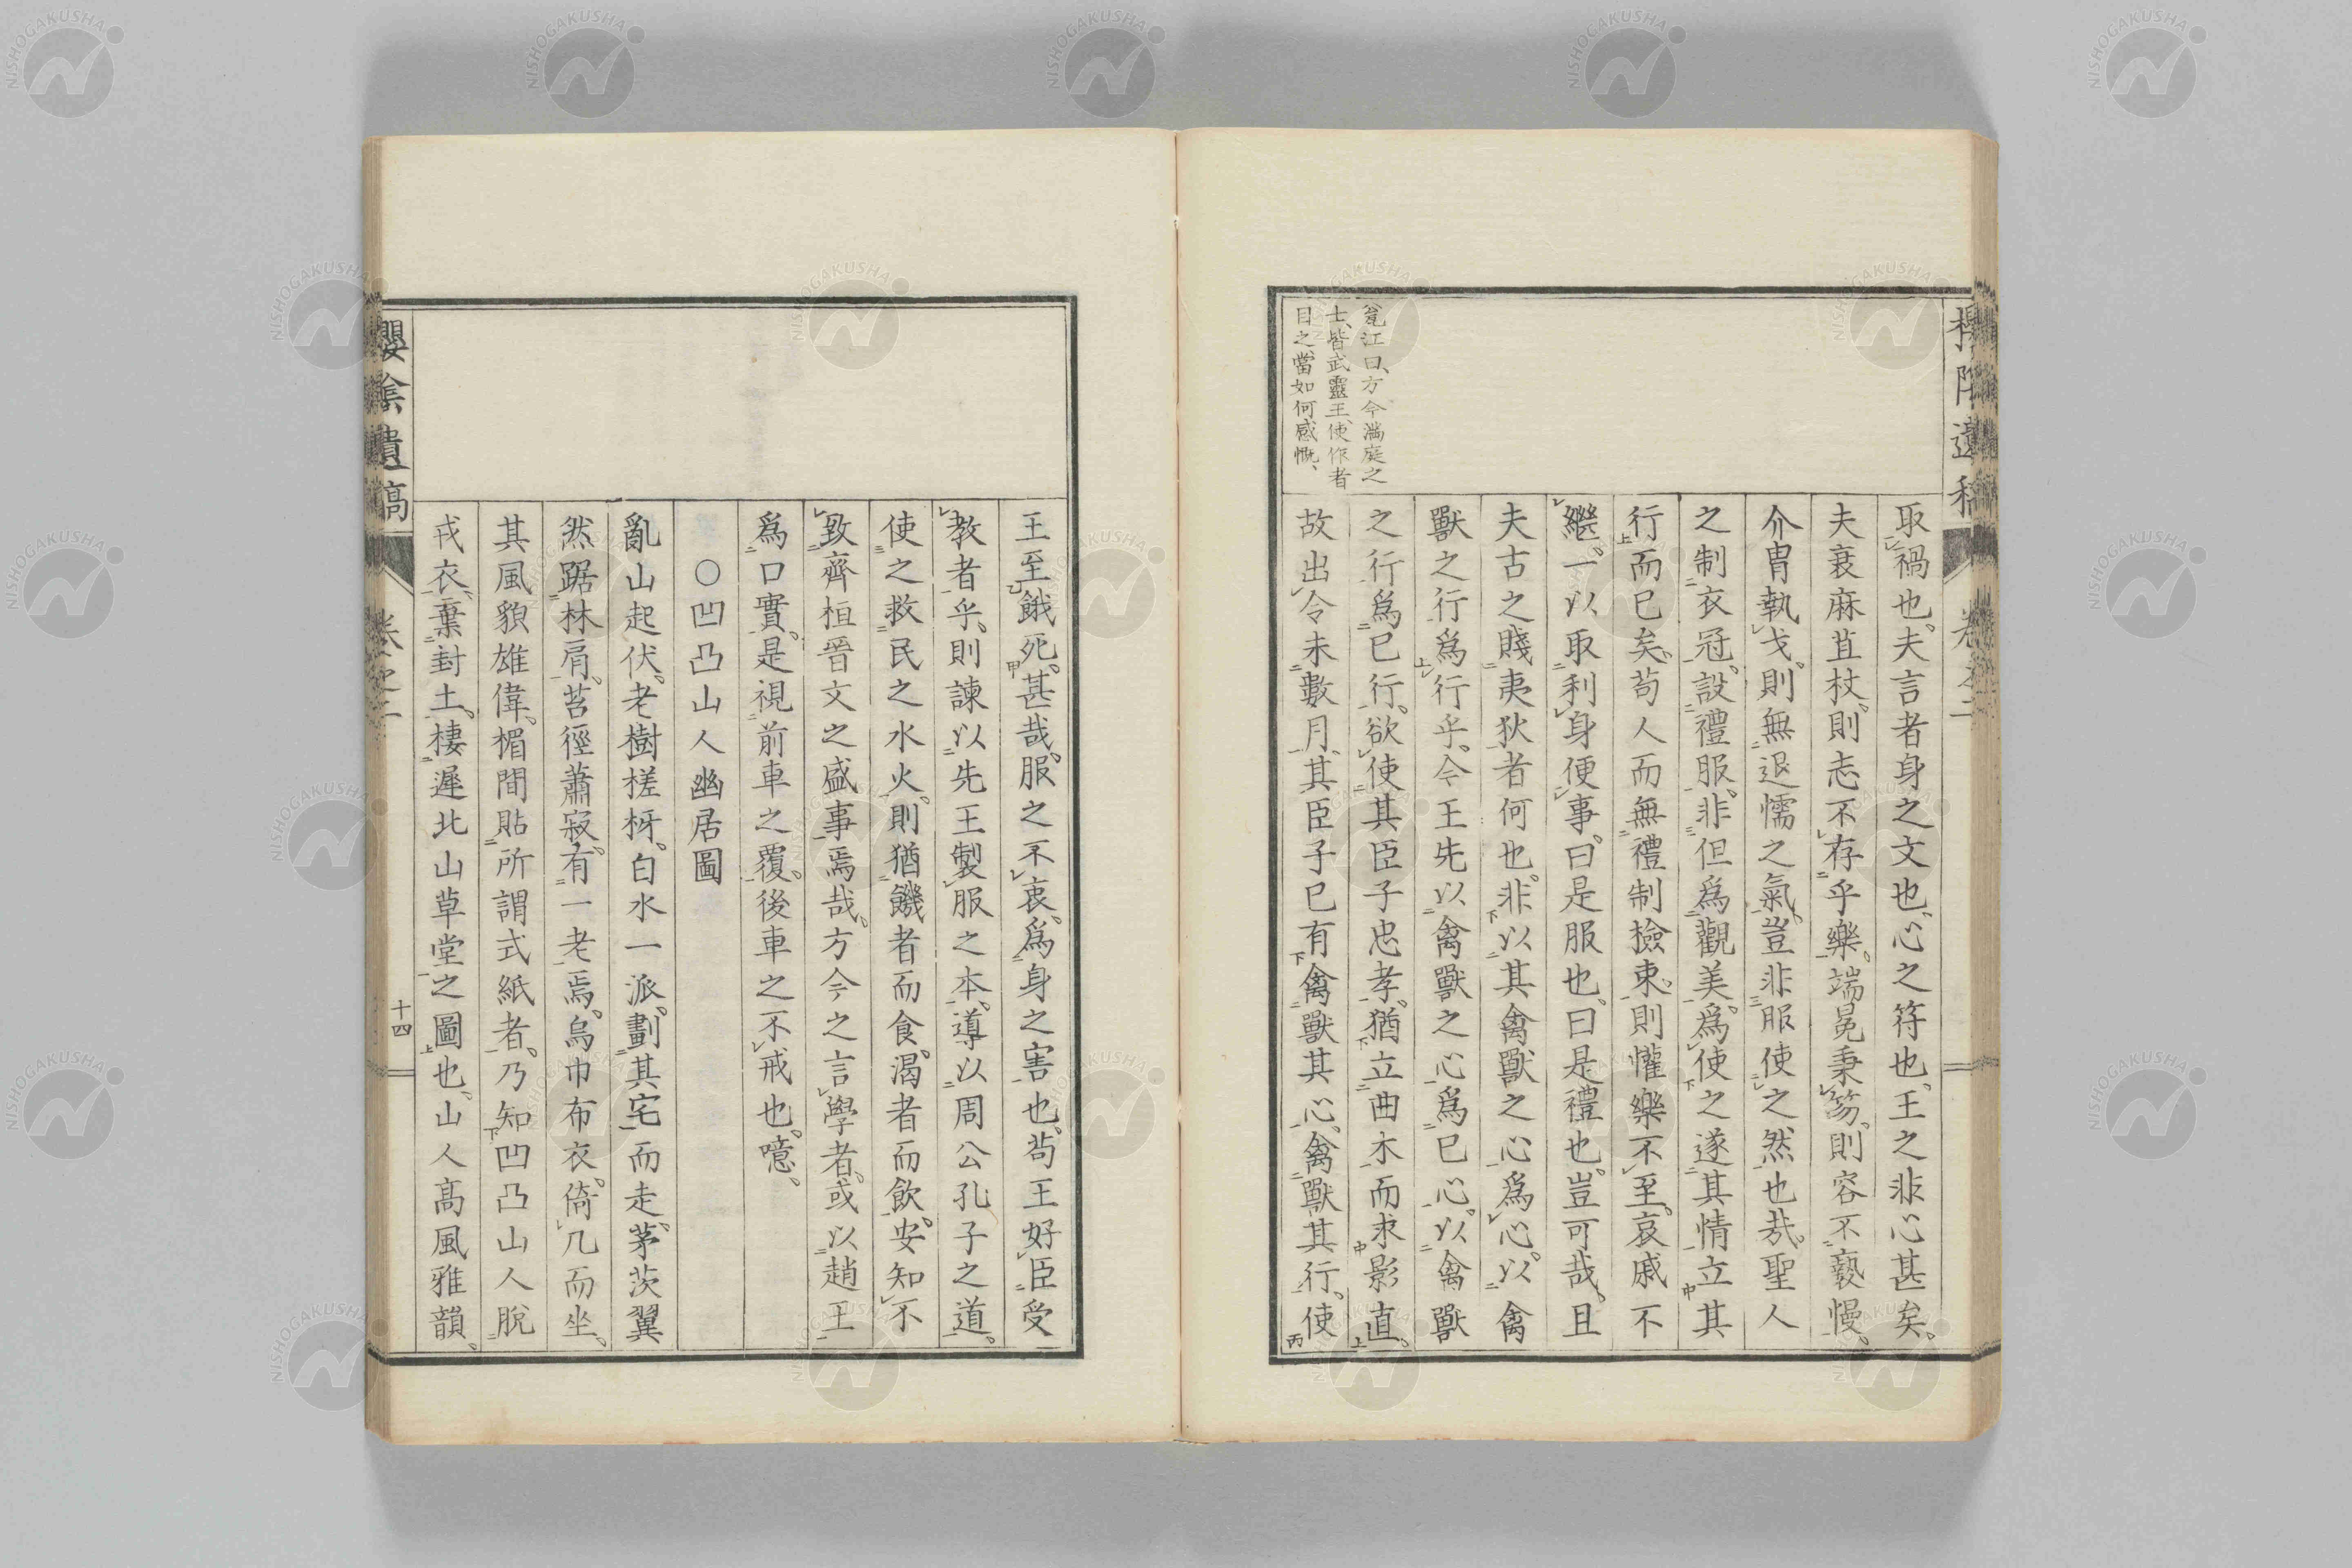 取禍也。夫言者身之文也、心之符也、王之非心甚矣。
夫衰麻苴杖、則志不存乎樂。端冕秉笏、則容不褻慢。
介冑執戈、則無退懦之氣。豈非服使之然也哉。聖人
之制衣冠。設禮服。非但爲觀美。爲使之遂其情立其
行而已矣。苟人而無禮制撿束。則懽樂不至。哀戚不
繼。一以取利身便事。曰是服也。曰是禮也。豈可哉。且
夫古之賤夷狄者何也。非以其禽獸之心爲心。以禽
獸之行爲行乎。今王先以禽獸之心爲已心。以禽獸
之行爲已行。欲使其臣子忠孝。猶立曲木而求影直。
故出令未數月。其臣子已有禽獸其心。禽獸其行。使
甕江曰、方今滿庭之
士、皆武靈王、使作者
目之、當如何感慨、
王至餓死。甚哉。服之不衷。爲身之害也。苟王好臣受
教者乎。則諫以先王製服之本。導以周公孔子之道。
使之救民之水火。則猶饑者而食。渴者而飲。安知不
致齊桓晉文之盛事焉哉。方今之言學者。或以趙王
爲口實。是視前車之覆。後車之不戒也。噫、
○凹凸山人幽居圖
亂山起伏。老樹槎枒。白水一派。劃其宅而走。茅茨翼
然踞林肩。苔徑蕭寂。有一老焉。烏巾布衣。倚几而坐。
其風貌雄偉。楣間貼所謂式紙者。乃知凹凸山人脫
戎衣。棄封土。棲遲北山草堂之圖也。山人高風雅韻。
櫻陰遺稿
卷之二
十四